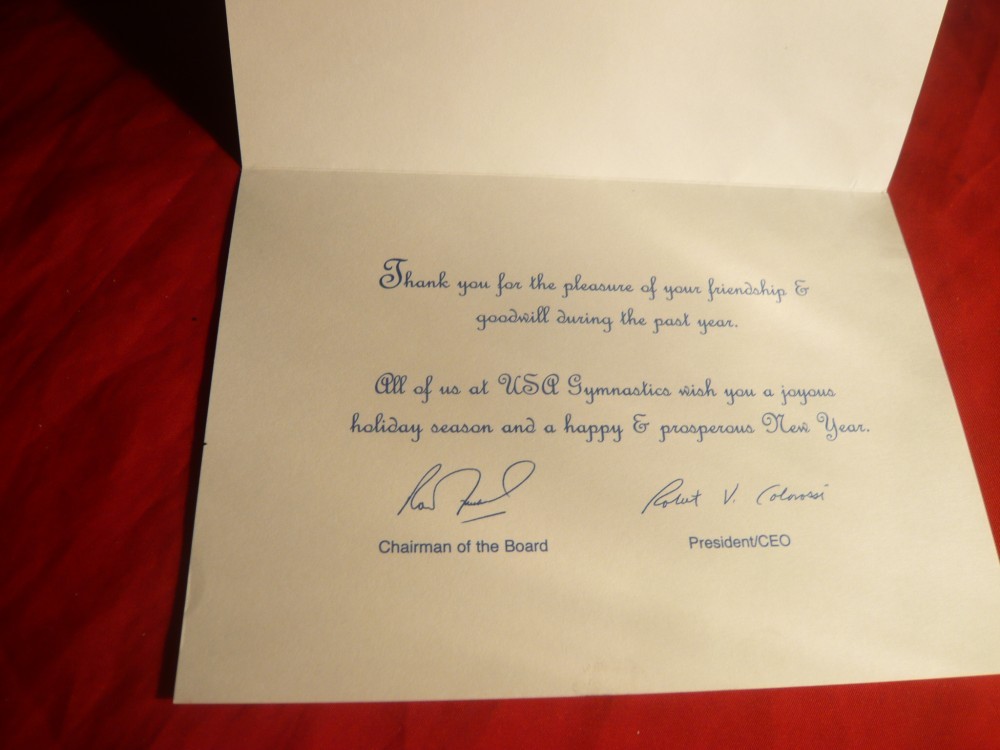 Thank you for the pleasure of your friendship &
goodwill during the past year.
All of us at USA Gymnastics wish you a joyous
holiday season and a happy & prosperous New Year.
Robert V. Colarossi
Chairman of the Board
President/CEO